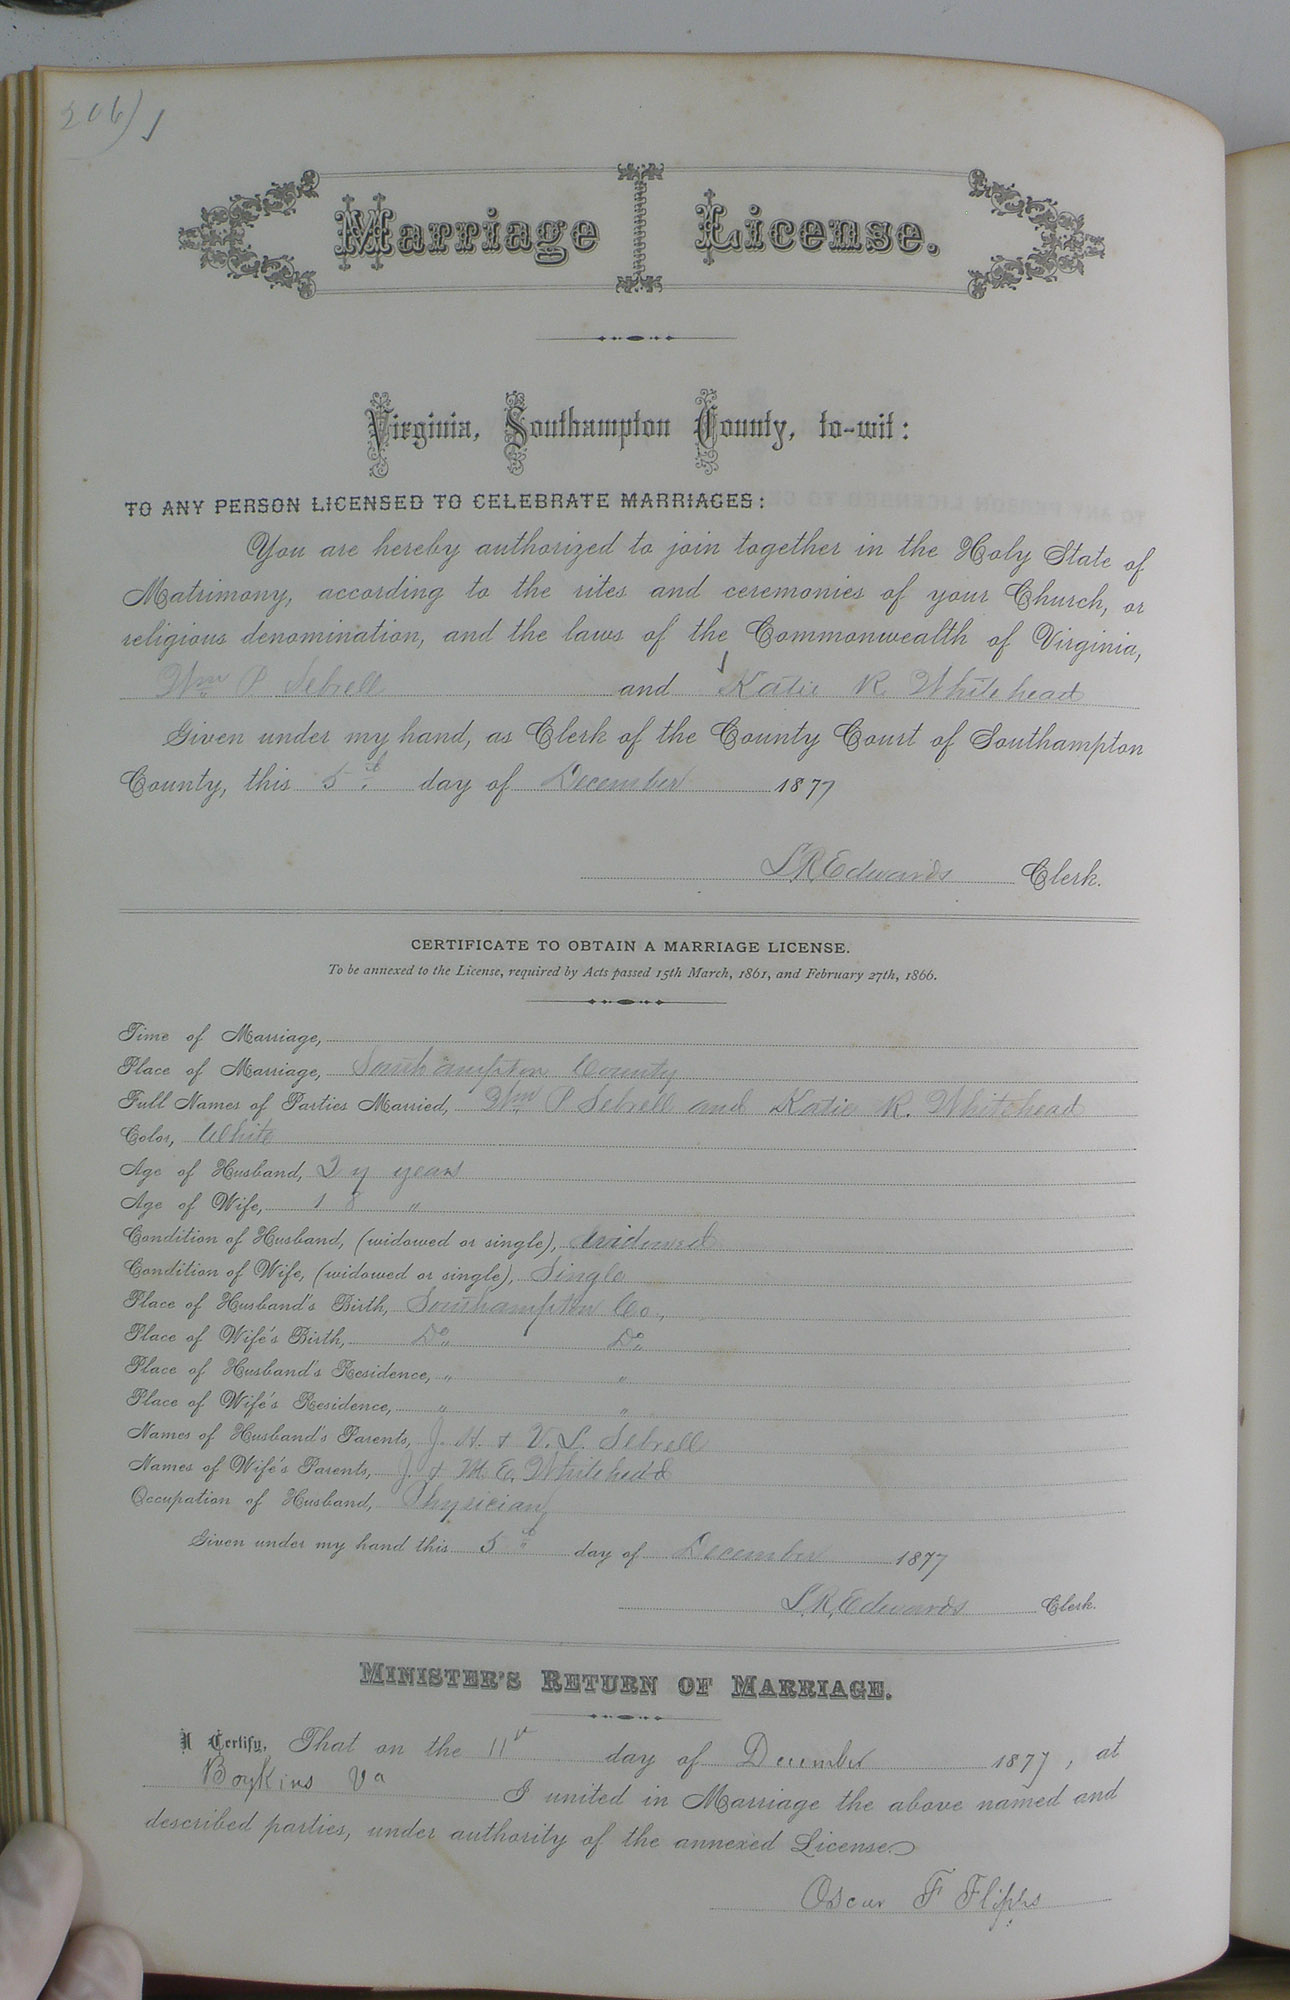 206)
Marriage License.
Virginia, Southampton County, to-wit:
TO ANY PERSON LICENSED TO CELEBRATE MARRIAGES:
You are hereby authorized to join together in the Holy State of
Matrimony, according to the rites and ceremonies of your Church, or
religious denomination, and the laws of the Commonwealth of Virginia,
Wm P Sebrell and Katie R. Whitehead
Given under my hand, as Clerk of the County Court of Southampton
County, this 5th day of December 1877
L R Edwards Clerk.
CERTIFICATE TO OBTAIN A MARRIAGE LICENSE.
To be annexed to the License, required by Acts passed 15th March, 1861, and February 27th, 1866.
Time of Marriage,
Place of Marriage, Southampton County
Full Names of Parties Married, Wm P Sebrell and Katie R. Whitehead
Color, White
Age of Husband, 27 years
Age of Wife, 18 "
Condition of Husband, (widowed or single), widowed
Condition of Wife, (widowed or single), Single
Place of Husband's Birth, Southampton Co.,
Place of Wife's Birth, Do " Do "
Place of Husband's Residence, " "
Place of Wife's Residence, " "
Names of Husband's Parents, J. H. & V. L. Sebrell
Names of Wife's Parents, J. & M. E. Whitehead
Occupation of Husband, Physician
Given under my hand this 5th day of December 1877
L. R. Edwards Clerk.
MINISTER'S RETURN OF MARRIAGE.
I Certify, That on the 11th day of December 1877, at
Boykins Va I united in Marriage the above named and
described parties, under authority of the annexed License.
Oscar F Flipps